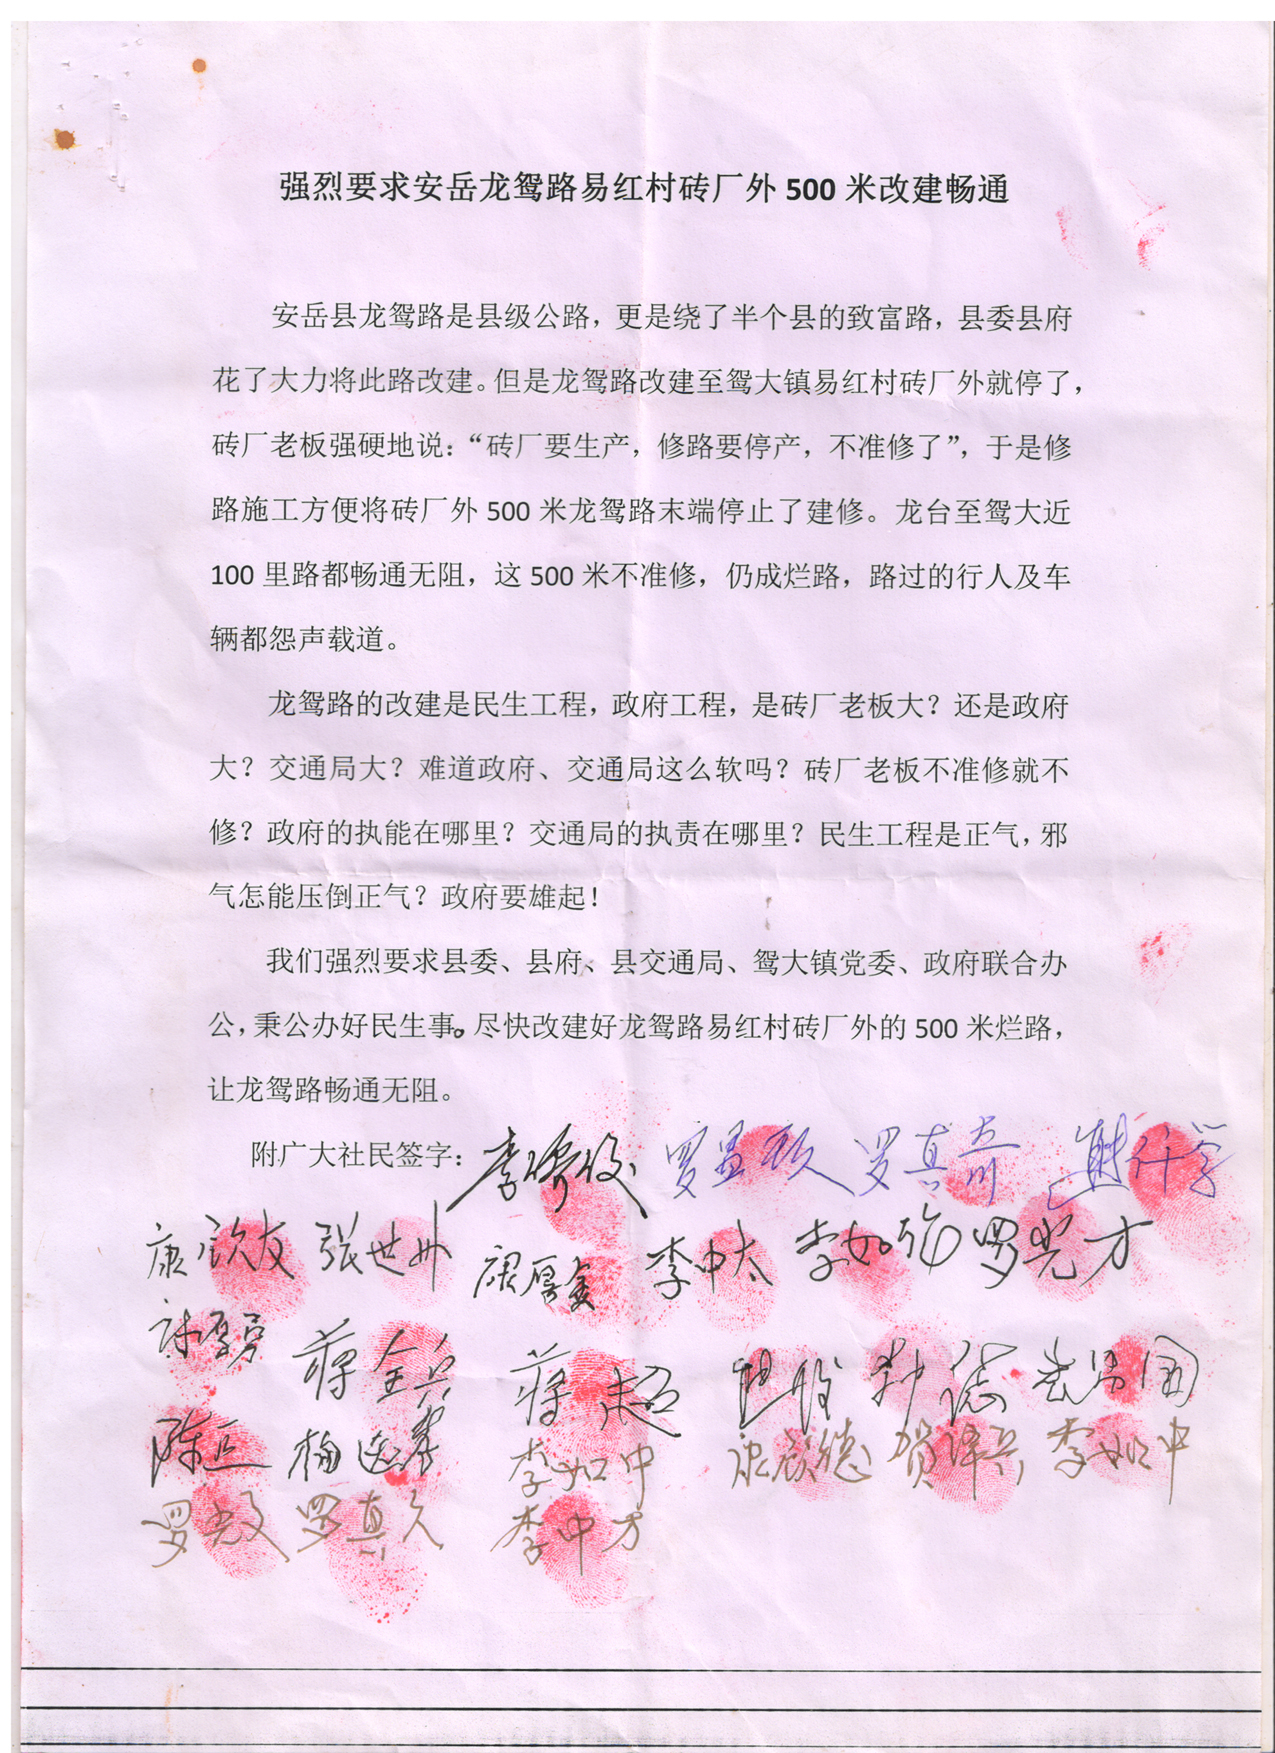 强烈要求安岳龙鸳路易红村砖厂外 500 米改建畅通
安岳县龙鸳路是县级公路，更是绕了半个县的致富路，县委县府
花了大力将此路改建。但是龙鸳路改建至鸳大镇易红村砖厂外就停了，
砖厂老板强硬地说：“砖厂要生产，修路要停产，不准修了”，于是修
路施工方便将砖厂外 500 米龙鸳路末端停止了建修。龙台至鸳大近
100 里路都畅通无阻，这 500 米不准修，仍成烂路，路过的行人及车
辆都怨声载道。
龙鸳路的改建是民生工程，政府工程，是砖厂老板大？还是政府
大？交通局大？难道政府、交通局这么软吗？砖厂老板不准修就不
修？政府的执能在哪里？交通局的执责在哪里？民生工程是正气，邪
气怎能压倒正气？政府要雄起！
我们强烈要求县委、县府、县交通局、鸳大镇党委、政府联合办
公，秉公办好民生事。尽快改建好龙鸳路易红村砖厂外的 500 米烂路，
让龙鸳路畅通无阻。
附广大社民签字：
张世州 李中太 罗光方
蒋全兵 蒋超
李如中 康顔德 李如中
罗真久 李中方